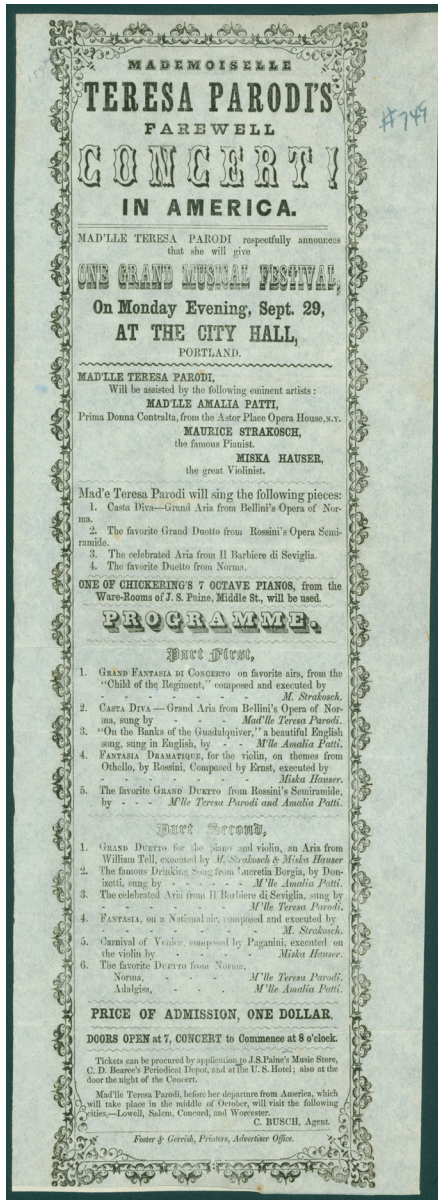 #749
MADEMOISELLE
TERESA PARODI'S
FAREWELL
CONCERT!
IN AMERICA.
MAD'LLE TERESA PARODI respectfully announces
that she will give
ONE GRAND MUSICAL FESTIVAL,
On Monday Evening, Sept. 29,
AT THE CITY HALL,
PORTLAND.
MAD'LLE TERESA PARODI,
Will be assisted by the following eminent artists:
MAD'LLE AMALIA PATTI,
Prima Donna Contralta, from the Astor Place Opera House, N.Y.
MAURICE STRAKOSCH,
the famous Pianist.
MISKA HAUSER,
the great Violinist.
Mad'e Teresa Parodi will sing the following pieces:
1. Casta Diva—Grand Aria from Bellini's Opera of Nor-
ma.
2. The favorite Grand Duetto from Rossini's Opera Semi-
ramide.
3. The celebrated Aria from Il Barbiere di Seviglia.
4. The favorite Duetto from Norma.
ONE OF CHICKERING'S 7 OCTAVE PIANOS, from the
Ware-Rooms of J. S. Paine, Middle St., will be used.
PROGRAMME.
Part First,
1. GRAND FANTASIA DI CONCERTO on favorite airs, from the
"Child of the Regiment," composed and executed by
- - - - - - M. Strakosch.
2. CASTA DIVA — Grand Aria from Bellini's Opera of Nor-
ma, sung by - - - Mad'lle Teresa Parodi.
3. "On the Banks of the Guadalquiver," a beautiful English
song, sung in English, by - - M'lle Amalia Patti.
4. FANTASIA DRAMATIQUE, for the violin, on themes from
Othello, by Rossini, Composed by Ernst, executed by
- - - - - - Miska Hauser.
5. The favorite GRAND DUETTO from Rossini's Semiramide,
by - - - M'lle Teresa Parodi and Amalia Patti.
Part Second,
1. GRAND DUETTO for the piano and violin, an Aria from
William Tell, executed by M. Strakosch & Miska Hauser
2. The famous Drinking Song from Lucretia Borgia, by Don-
izetti, sung by - - - - - M'lle Amalia Patti.
3. The celebrated Aria from Il Barbiere di Seviglia, sung by
- - - - - - M'lle Teresa Parodi.
4. FANTASIA, on a National air, composed and executed by
- - - - - - M. Strakosch.
5. Carnival of Venice, composed by Paganini, executed on
the violin by - - - - - Miska Hauser.
6. The favorite DUETTO from Norma,
Norma, - - - - M'lle Teresa Parodi.
Adalgisa, - - - - M'lle Amalia Patti.
PRICE OF ADMISSION, ONE DOLLAR.
DOORS OPEN at 7, CONCERT to Commence at 8 o'clock.
Tickets can be procured by application to J.S.Paine's Music Store,
C. D. Bearce's Periodical Depot, and at the U. S. Hotel; also at the
door the night of the Concert.
Mad'lle Teresa Parodi, before her departure from America, which
will take place in the middle of October, will visit the following
cities,—Lowell, Salem, Concord, and Worcester.
C. BUSCH, Agent.
Foster & Gerrish, Printers, Advertiser Office.